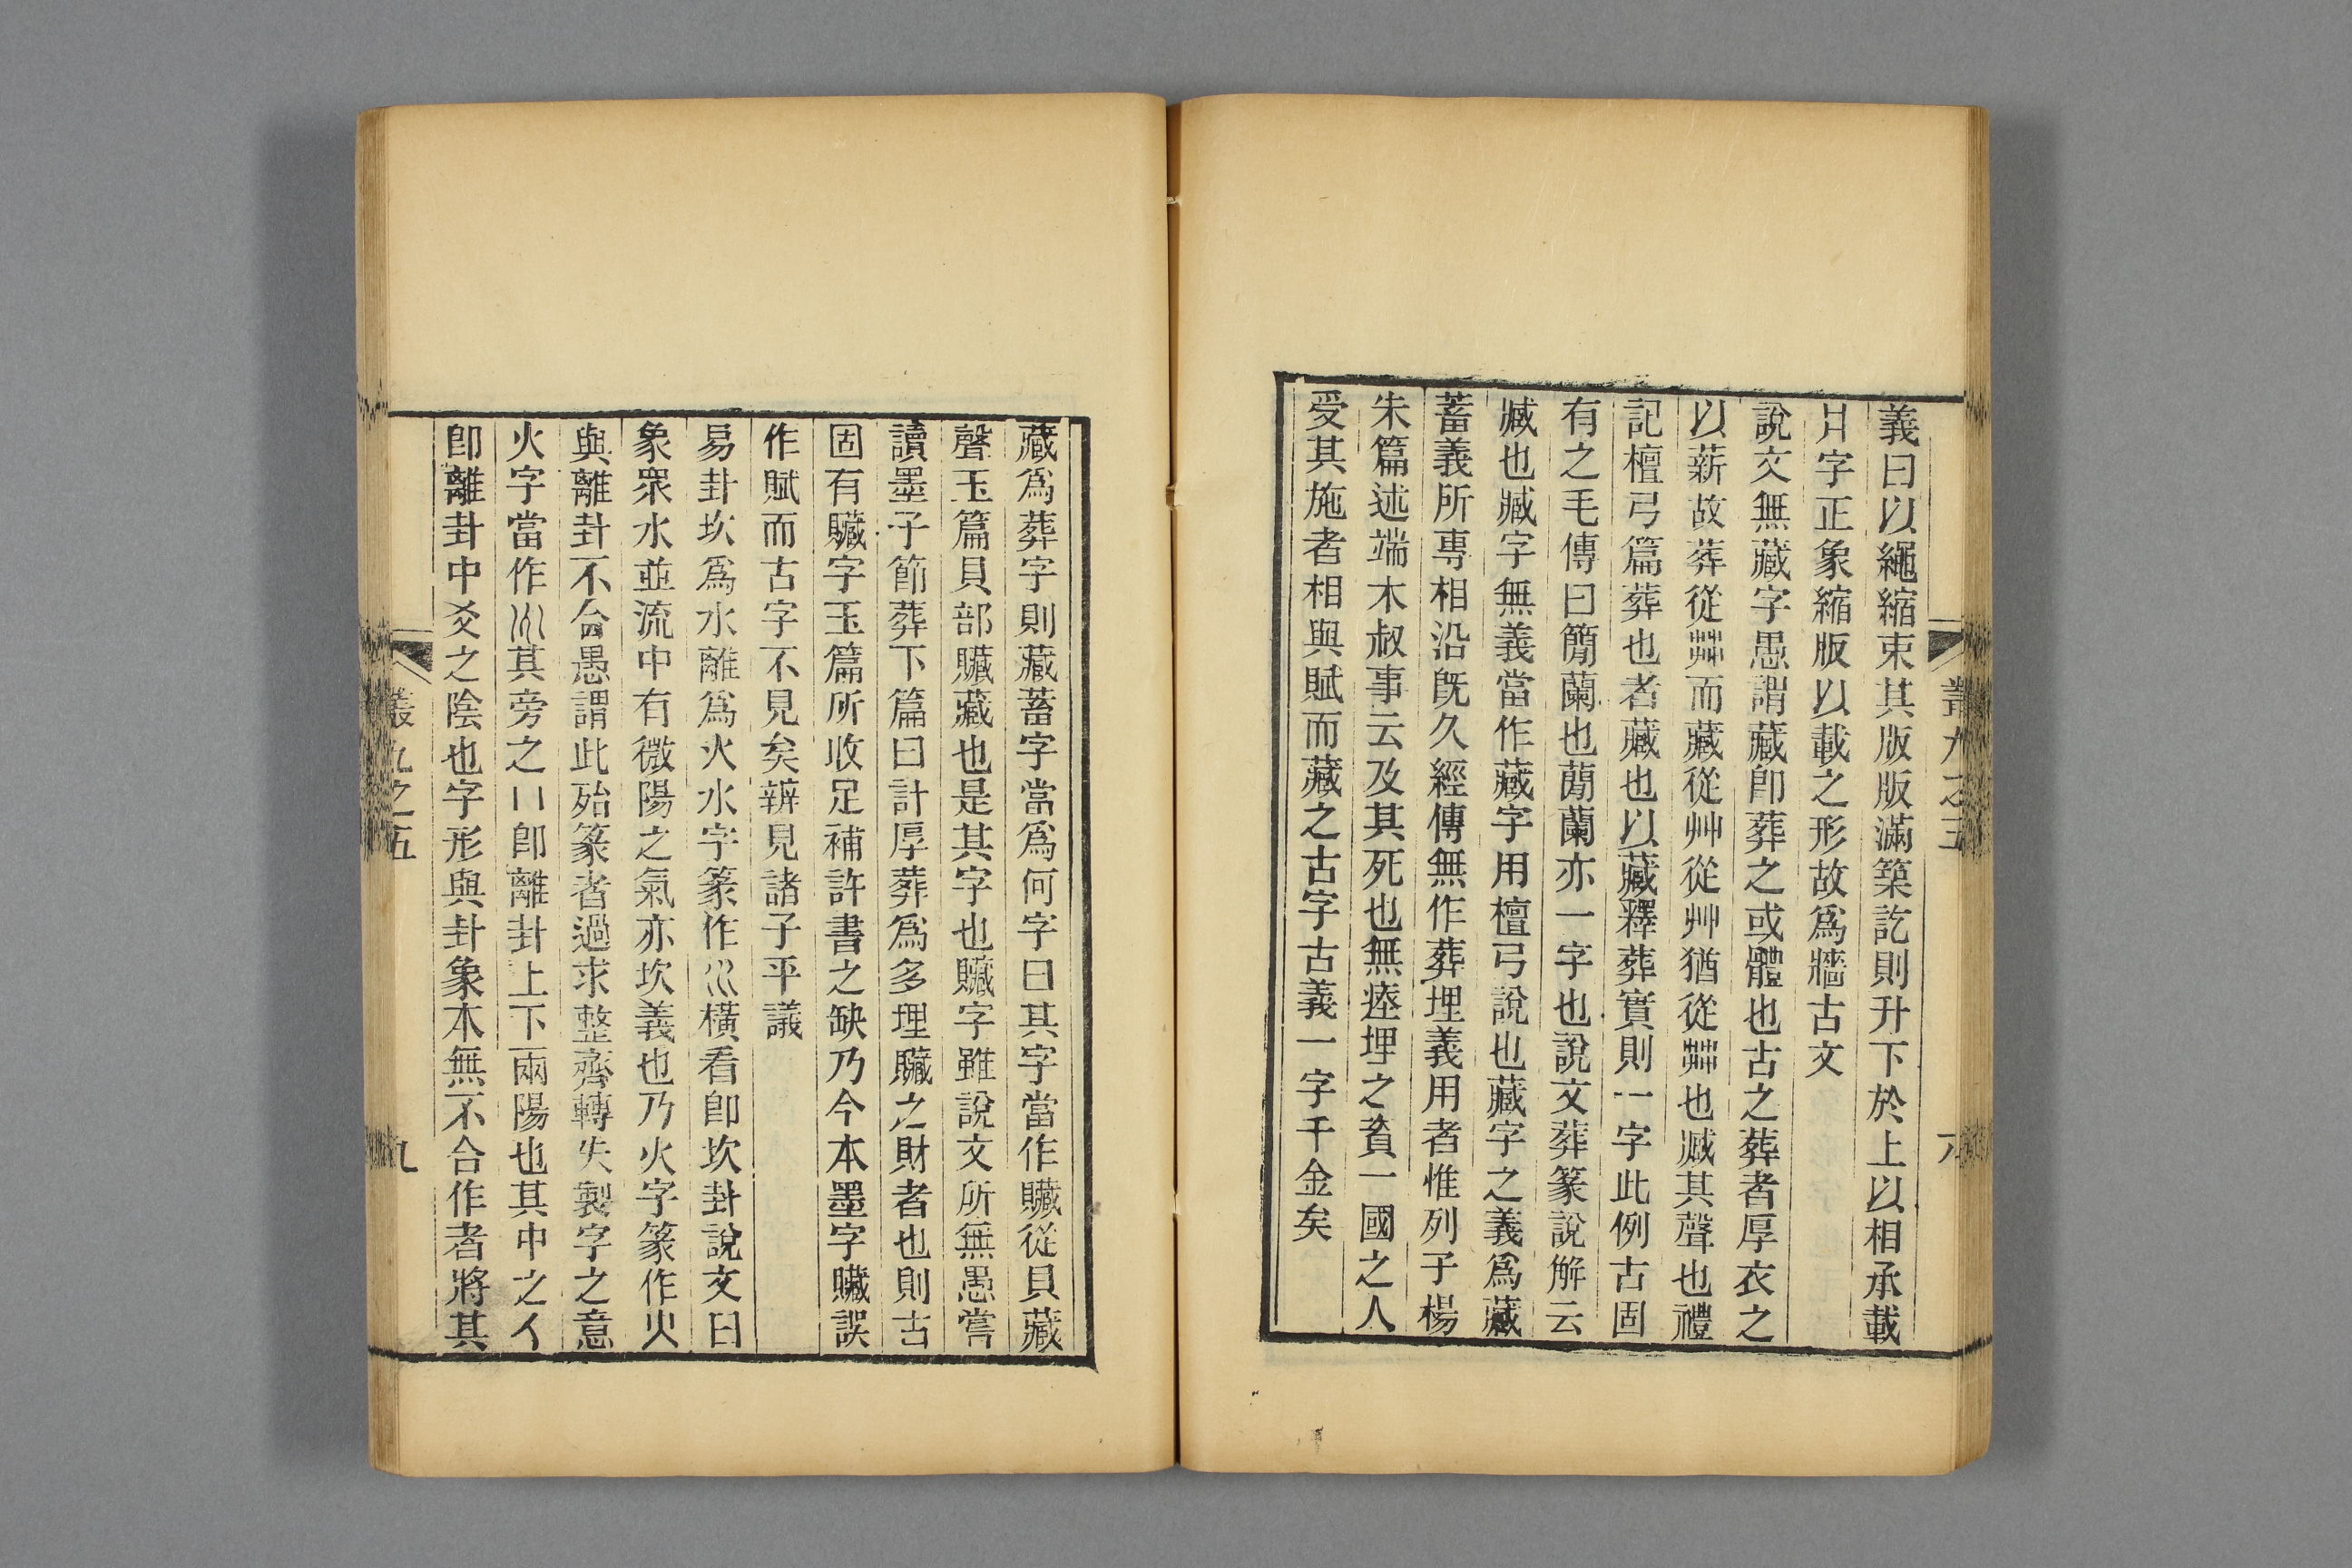 義曰以繩縮束其版版滿築訖則升下於上以相承載
爿字正象縮版以載之形故爲牆古文
說文無藏字愚謂藏卽葬之或體也古之葬者厚衣之
以薪故葬從茻而藏從艸從艸猶從茻也臧其聲也禮
記檀弓篇葬也者藏也以藏釋葬實則一字此例古固
有之毛傳曰簡蘭也蕑蘭亦一字也說文葬篆說解云
臧也臧字無義當作藏字用檀弓說也藏字之義爲藏
蓄義所專相沿旣久經傳無作葬埋義用者惟列子楊
朱篇述端木叔事云及其死也無瘞埋之資一國之人
受其施者相與賦而藏之古字古義一字千金矣
叢九之五
藏爲葬字則藏蓄字當爲何字曰其字當作贓從貝藏
聲玉篇貝部贓藏也是其字也贓字雖說文所無愚嘗
讀墨子節葬下篇曰計厚葬爲多埋贓之財者也則古
固有贓字玉篇所收足補許書之缺乃今本墨字贓誤
作賦而古字不見矣辨見諸子平議
易卦坎爲水離爲火水字篆作巛橫看卽坎卦說文曰
象衆水並流中有微陽之氣亦坎義也乃火字篆作火
與離卦不合愚謂此殆篆者過求整齊轉失製字之意
火字當作其旁之八卽離卦上下兩陽也其中之人
卽離卦中爻之陰也字形與卦象本無不合作者將其
叢九之五
九